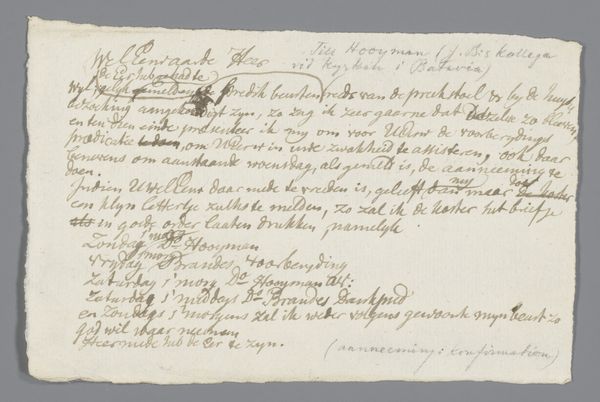 WelEerwaarde Heer
Till Hooyman (J. Bis kollega
vid kyrkan i Batavia)
(de Eer heb gehad te)
predik beurten reeds van de preekstoel
aangekondigt zyn, zo zag ik zeer gaerne dat Dezelve zo bleeven,
en ten dien einde presenteer ik my om voor UEerw de voorbereydings
predicatie te doen, om UEerw in uwe zwakheid te assisteren, ook daar
benevens om aanstaande woensdag, als gemelt is, de aanneeming te
doen.
Indien UWelEerw daar mede te vreden is, gelieft my maar door
een klyn lettertje zulks te melden, zo zal ik de koster het briefje
als in goede order laaten drukken, namelyk
Zondag Ds Hooyman
vrydag Brandes voorbereyding
Zaturdag s'morg Ds Hooyman
Zaturdag s'middags Ds Brandes Dank
en Zondags s'morgens zal ik weder volgens gewoonte myn beurt zo
god wil waarneemen
Hiermede heb de Eer te zyn.
(aanneeming: konfirmation)